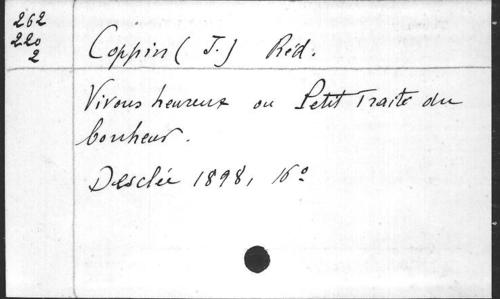 262
220
2
Coppin (J.) Réd.
Vivons heureux ou Petit Traité du
bonheur.
Desclée 1898, 16°